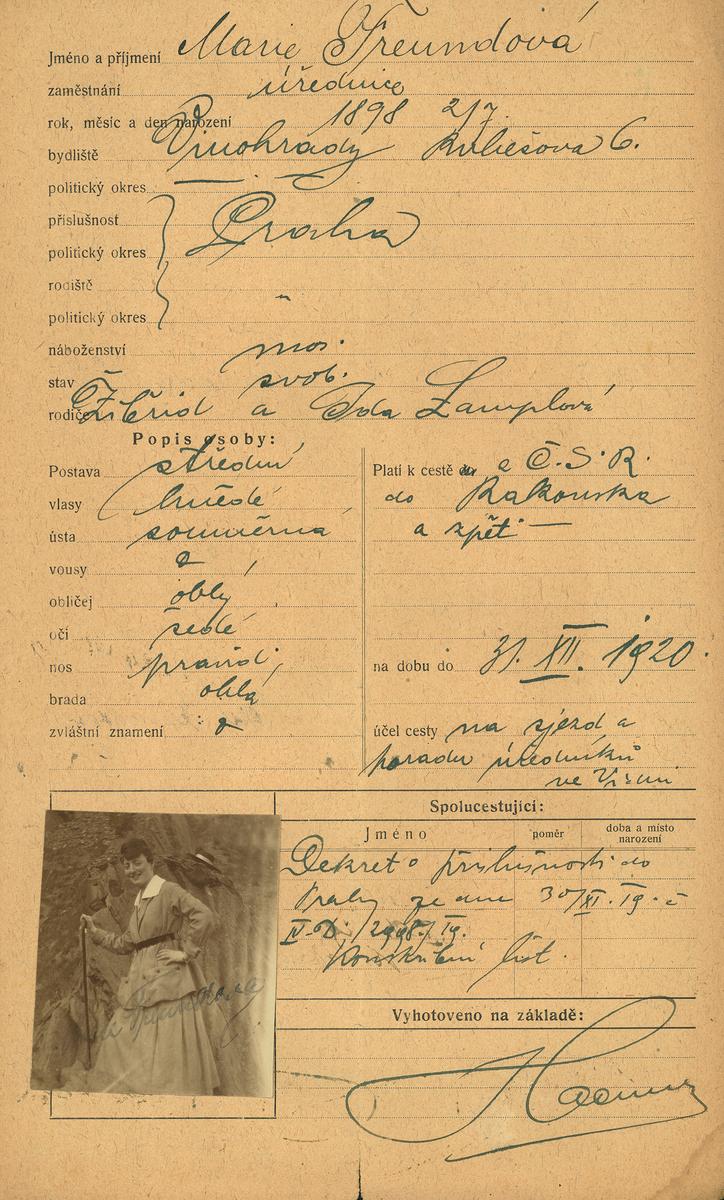 Jméno a příjmení Marie Freundová
zaměstnání úřednice
rok, měsíc a den narození 1898 2/7.
bydliště Vinohrady 6.
politický okres —
příslušnost Praha
politický okres
rodiště
politický okres
náboženství mos.
stav svob.
rodiče a Ida Lamplová
Popis osoby:
Postava střední
vlasy hnědé
ústa souměrná
vousy
obličej oblý
oči šedé
nos pravid.
brada oblá
zvláštní znamení :
Platí k cestě z Č.S.R.
do Rakouska
a zpět —
na dobu do 31. XII. 1920.
účel cesty na sjezd a
poradu úředníků
ve Vídni
Spolucestující:
Jméno poměr doba a místo
narození
Dekret o příslušnosti do
Prahy ze dne 30/XI. 19. č
Konskrikční list.
Vyhotoveno na základě: